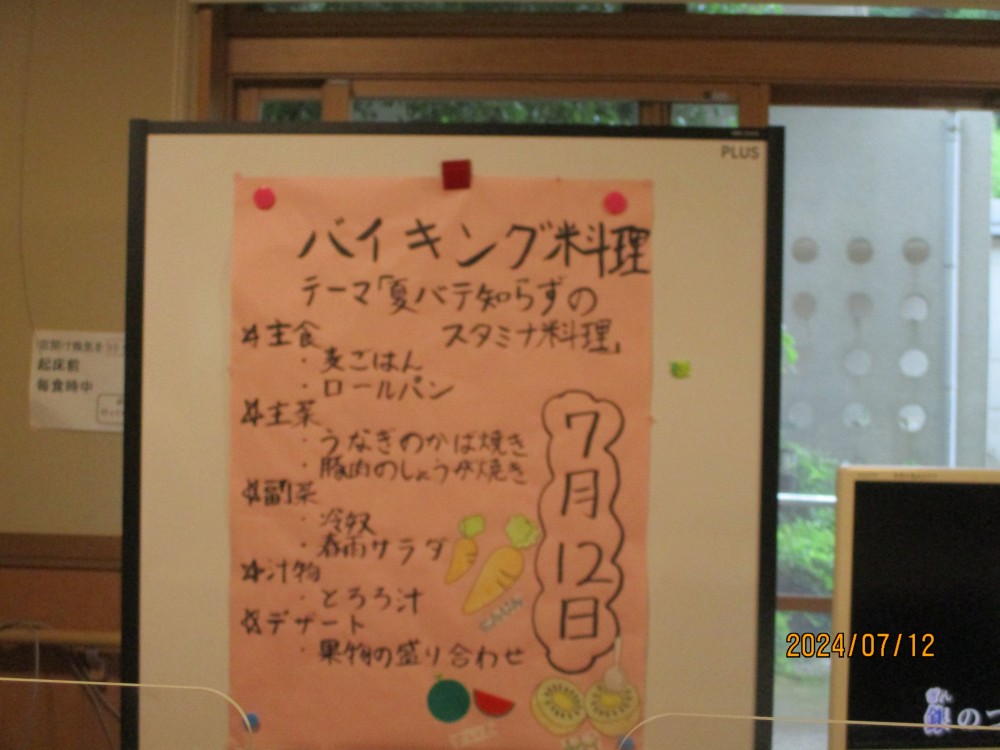 PLUS
バイキング料理
テーマ「夏バテ知らずの
スタミナ料理」
☆主食
・麦ごはん
・ロールパン
☆主菜
・うなぎのかば焼き
・豚肉のしょうが焼き
☆副菜
・冷奴
・春雨サラダ
☆汁物
・とろろ汁
☆デザート
・果物の盛り合わせ
7月12日
にんじん
起床前
毎食時中
2024/07/12
銀のつ